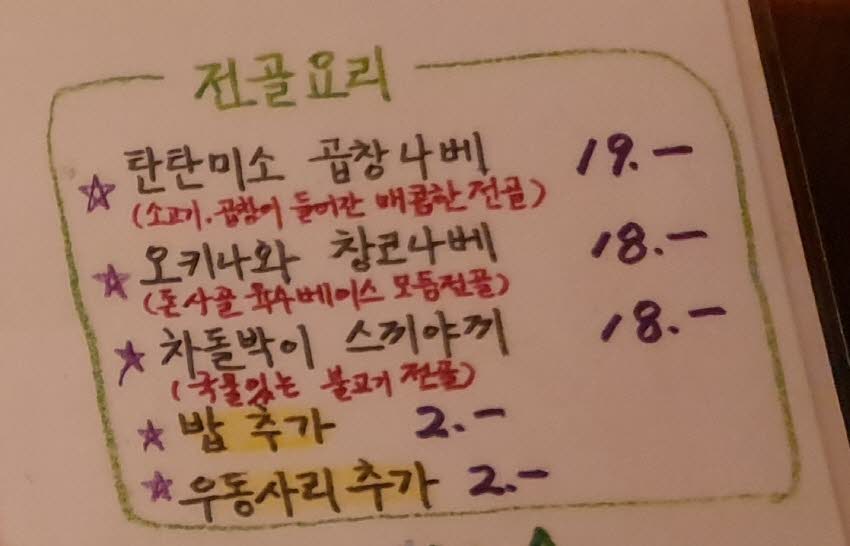 전골요리
탄탄미소 곱창나베 19.-
(소고기.곱창이 들어간 매콤한 전골)
오키나와 창코나베 18.-
(돈사골 육수베이스 모듬전골)
차돌박이 스끼야끼 18.-
(국물있는 불고기 전골)
밥 추가 2.-
우동사리 추가 2.-